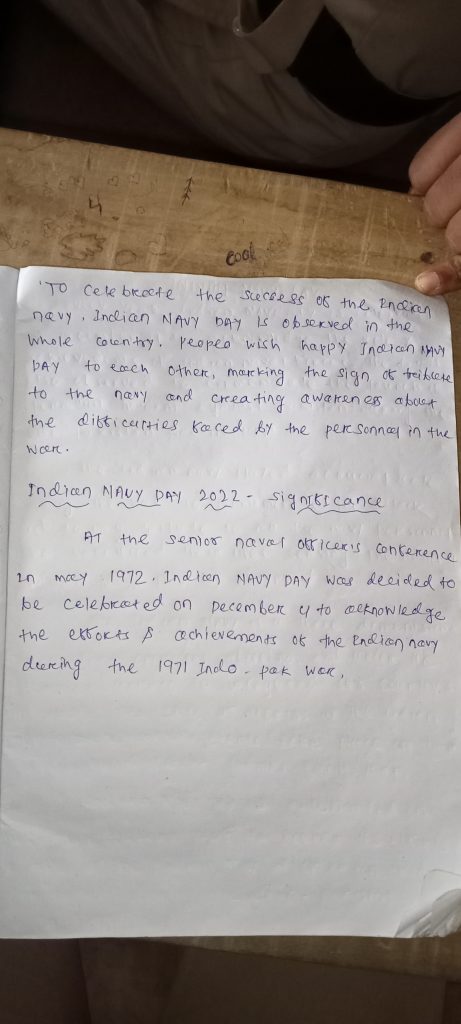 4
cool
'TO Celebrate the success of the Indian
navy. Indian NAVY DAY is observed in the
whole country. Peopea wish happy Indian NAVY
DAY to each other, marking the sign of tribute
to the navy and creating awareness about
the difficulties faced by the personnel in the
war.
Indian NAVY DAY 2022 - significance
AT the senior naval officer's conference
in may 1972. Indian NAVY DAY was decided to
be celebrated on December 4 to acknowledge
the efforts & achievements of the Indian navy
during the 1971 Indo-pak war,